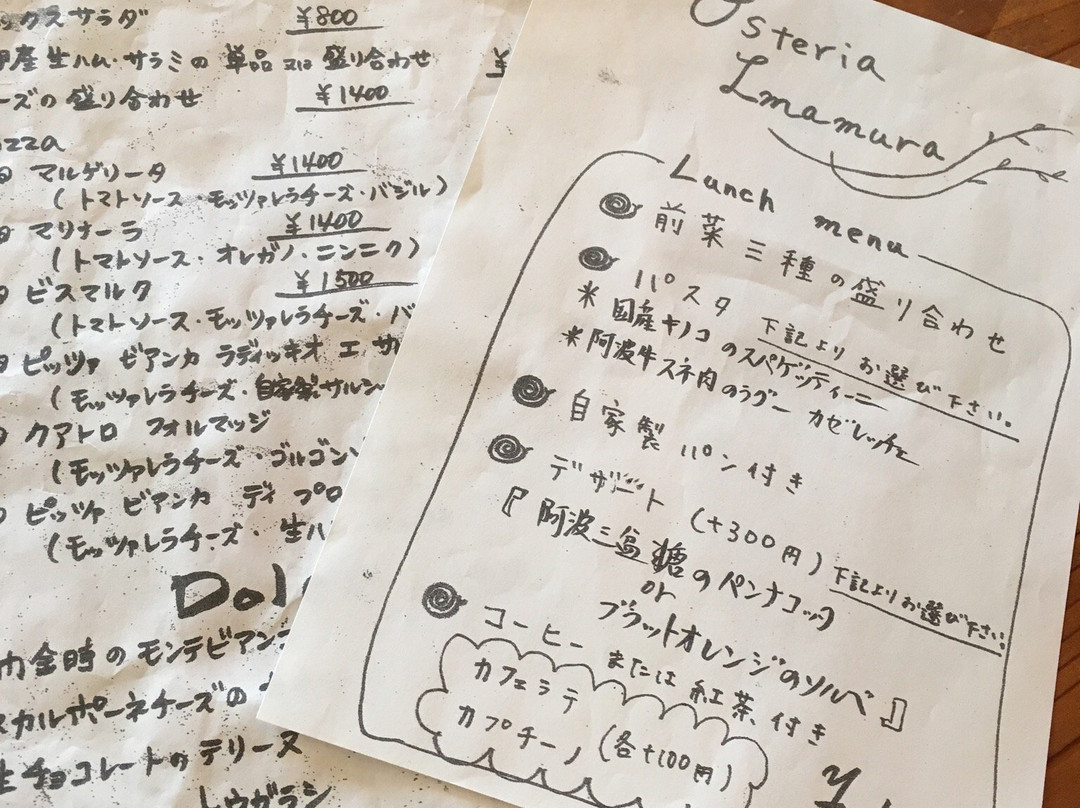 ックスサラダ ¥800
産生ハム・サラミの 単品 又は 盛り合わせ ¥
ーズの盛り合わせ ¥1400
izza
マルゲリータ ¥1400
(トマトソース・モッツァレラチーズ・バジル)
マリナーラ ¥1400
(トマトソース・オレガノ・ニンニク)
ビスマルク ¥1500
(トマトソース・モッツァレラチーズ・バ
ピッツァ ビアンカ ラディッキオ エ サ
(モッツァレラチーズ・自家製サルシ
クアトロ フォルマッジ
(モッツァレラチーズ・ゴルゴンゾ
ピッツァ ビアンカ ディ プロ
(モッツァレラチーズ・生ハ
Dol
金時のモンテビアン
スカルポーネチーズの
生チョコレートのテリーヌ
トウガラシ
Osteria
Imamura
Lunch menu
前菜三種の盛り合わせ
パスタ 下記よりお選び下さい。
*国産キノコのスパゲッティーニ
*阿波牛スネ肉のラグー カゼレッチェ
自家製パン付き
デザート (+300円) 下記よりお選び下さい
『阿波三盆糖のパンナコッタ
or
ブラッドオレンジのソルベ』
コーヒー または 紅茶 付き
カフェラテ
カプチーノ (各+100円)
¥